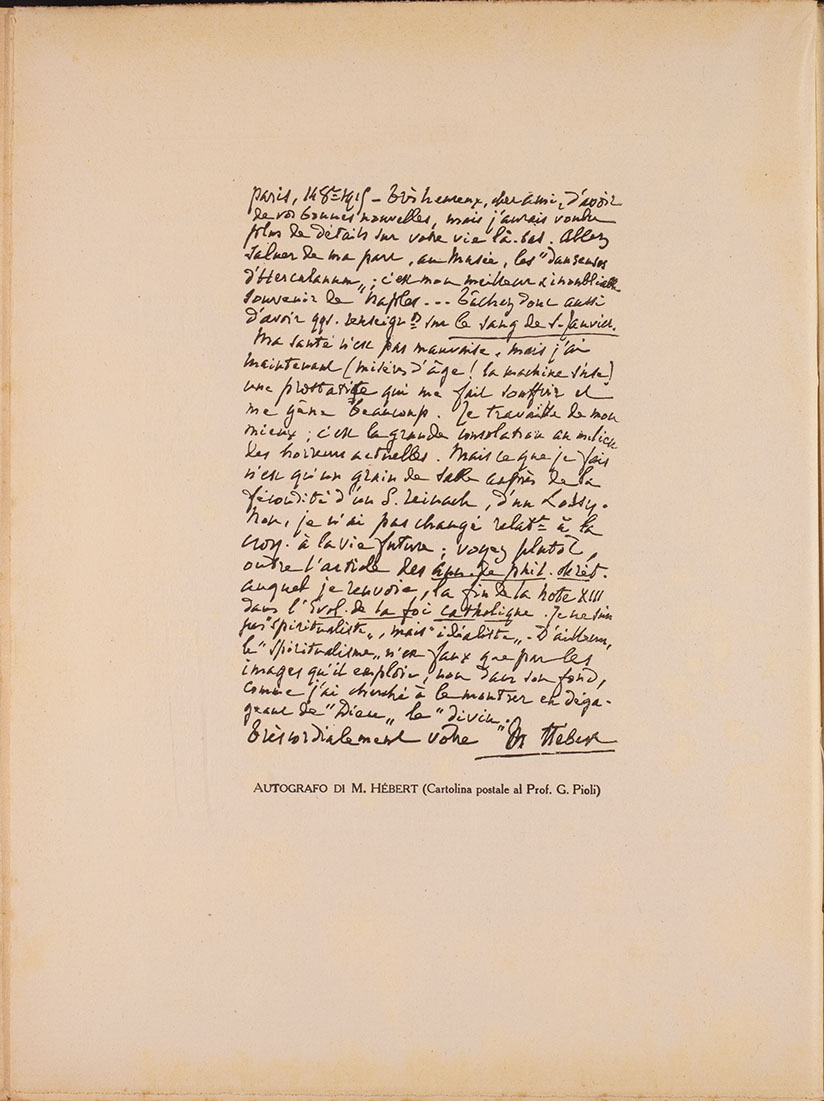 Paris, 14 8re 1915 – Très heureux, cher ami, d'avoir
de vos bonnes nouvelles, mais j'aurais voulu
plus de détails sur votre vie là-bas. Allez
saluer de ma part, au Musée, les "danseuses
d'Herculanum"; c'est mon meilleur & inoubliable
souvenir de Naples... Tâchez donc aussi
d'avoir qqs. renseigts sur le sang de S. Janvier.
Ma santé n'est pas mauvaise, mais j'ai
maintenant (misères d'âge! la machine s'use)
une prostatite qui me fait souffrir et
me gêne beaucoup. Je travaille de mon
mieux; c'est la grande consolation au milieu
des horreurs actuelles. Mais ce que je fais
n'est qu'un grain de sable auprès de la
fécondité d'un S. Reinach, d'un Loisy.
Non, je n'ai pas changé relatt à la
croy. à la vie future; voyez plutôt,
outre l'article des Ann. de phil. chrét.
auquel je renvoie, la fin de la note XIII
dans l'Évol. de la foi catholique. Je ne suis
pas "spiritualiste", mais "idéaliste". D'ailleurs,
le "spiritualisme" n'est faux que par les
images qu'il emploie, non dans son fond,
comme j'ai cherché à le montrer en déga-
geant de "Dieu" le "divin".
Très cordialement votre M Hébert
AUTOGRAFO DI M. HÉBERT (Cartolina postale al Prof. G. Pioli)